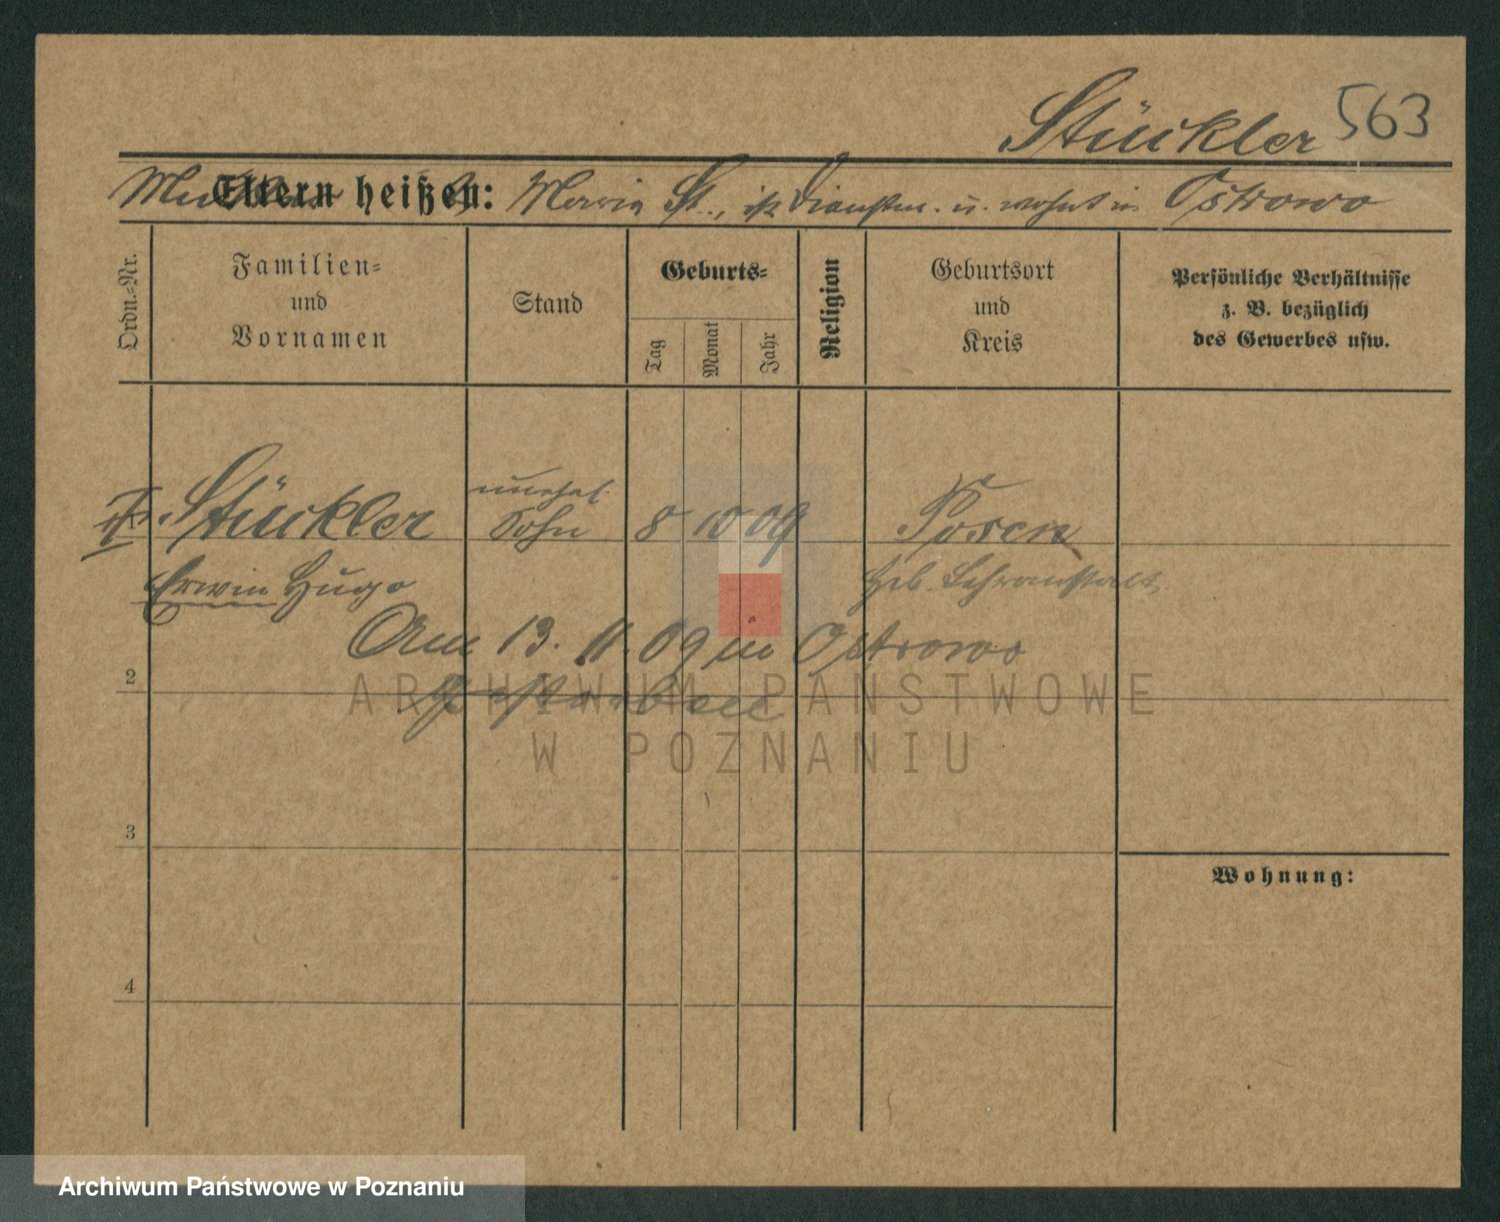 Stückler 563
Eltern heißen: Maria St., ist Dienstm. u. wohnt in Ostrowo
Ordn.-Nr.
Familien-
und
Vornamen
Stand
Geburts-
Tag
Monat
Jahr
Religion
Geburtsort
und
Kreis
Persönliche Verhältnisse
z. B. bezüglich
des Gewerbes usw.
Stückler
unehel.
Sohn
8 10 09
Posen
Erwin Hugo
Heb. Lehranstalt.
Am 13. 11. 09 in Ostrowo
gestorben
2
3
4
Wohnung:
ARCHIWUM PAŃSTWOWE
W POZNANIU
Archiwum Państwowe w Poznaniu